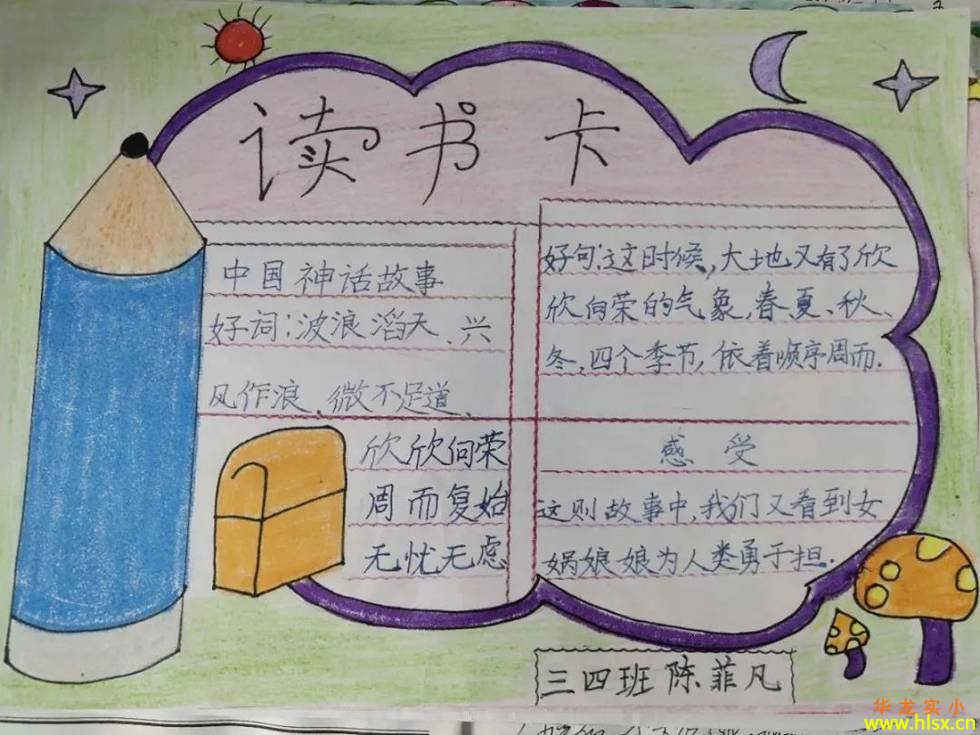 读书卡
中国神话故事
好词:波浪滔天、兴
风作浪、微不足道、
欣欣向荣
周而复始
无忧无虑
好句:这时候,大地又有了欣
欣向荣的气象,春、夏、秋、
冬,四个季节,依着顺序周而.
感受
这则故事中,我们又看到女
娲娘娘为人类勇于担.
三四班 陈菲凡
华龙实小
www.hlsx.cn